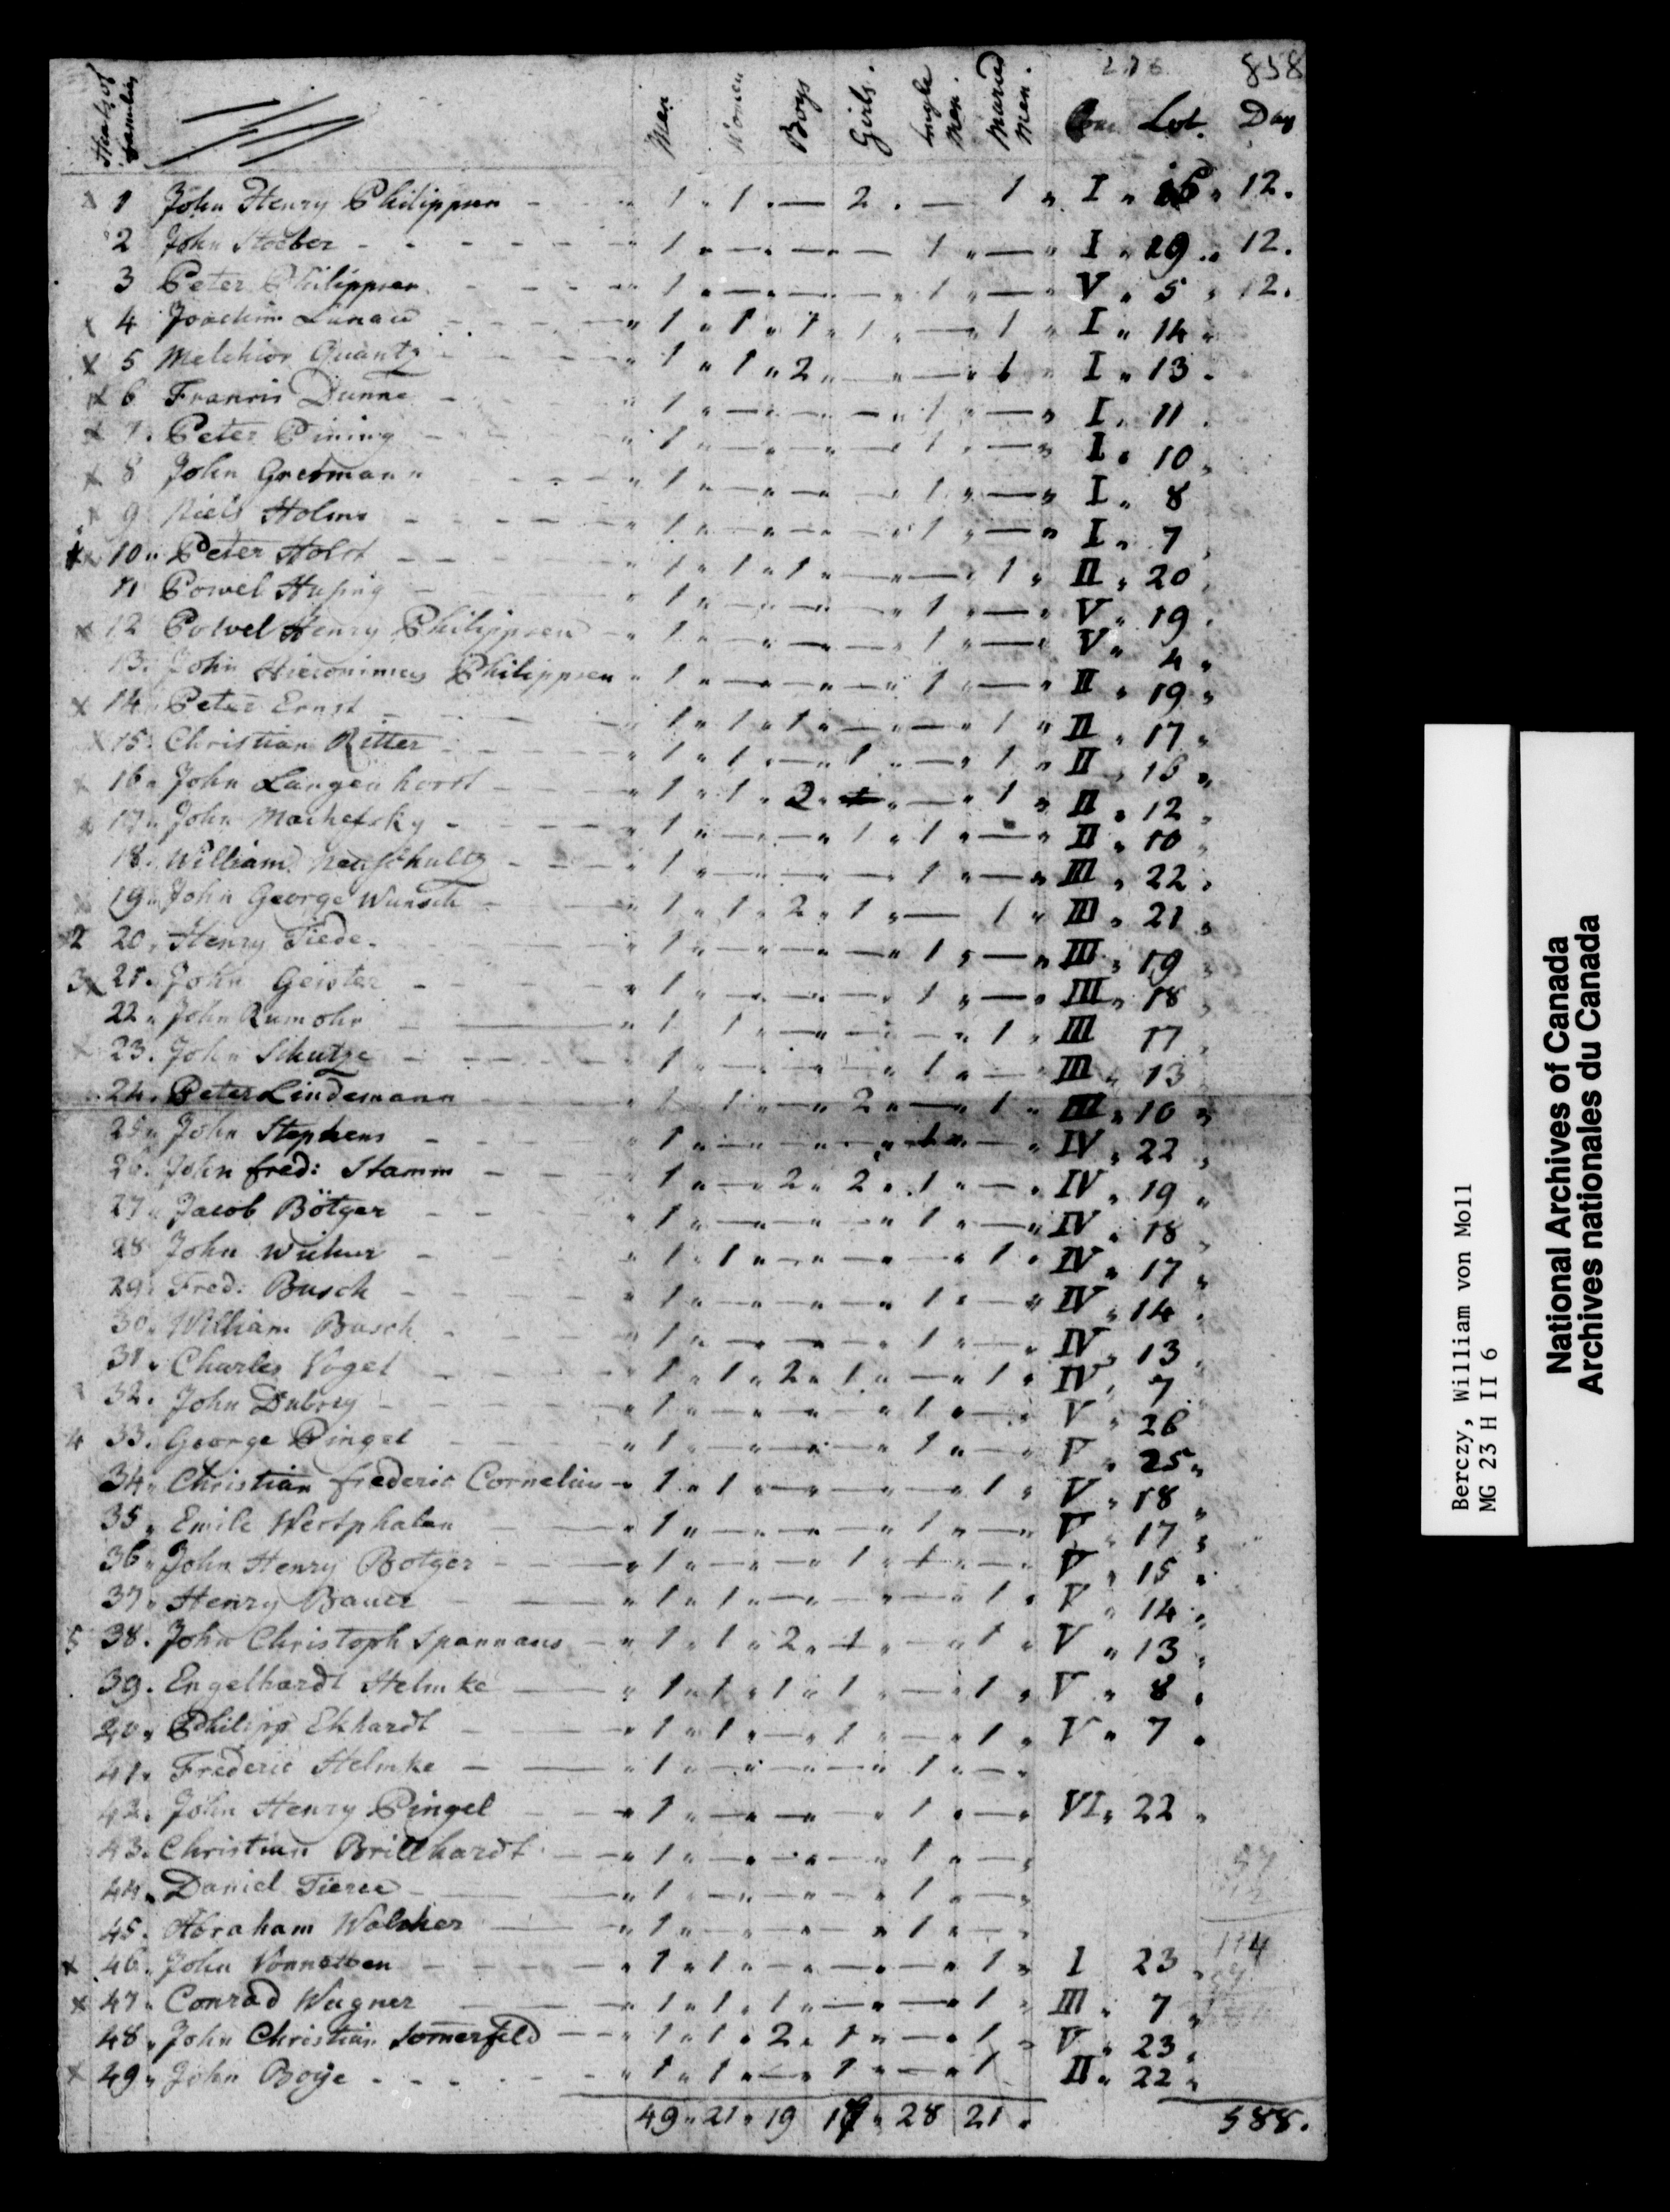 276 858
Heads of families Men Women Boys Girls. Single Men. Maried Men. Con Lot. Day
x 1 John Henry Philippsen - - " 1 " 1 " — 2 . — 1 " I " " 12.
2 John Stoeber - - - - - - " 1 " — " — " — 1 " — " I " 29 " 12.
3 Peter Philippsen - - - " 1 " — " — " — " 1 " — " V " 5 " 12.
x 4 Joachim Lunau - - - " 1 " 1 " 1 " 1 " — " 1 " I " 14 "
x 5 Melchior Quantz - - - " 1 " 1 " 2 " — " — " 1 " I " 13 "
x 6 Francis Dunne - - - " 1 " — " — " — " 1 " — " I " 11 "
x 7. Peter Pining - - - " 1 " — " — " — 1 " — " I " 10 "
x 8 John Gretmann - - - " 1 " — " — " — 1 " — " I " 8
x 9 Niels Holms - - - " 1 " — " — " — " 1 " — " I " 7 "
x 10 " Peter Holst - - - " 1 " 1 " 1 " — " — " 1 " II " 20 "
11 Powel Huping - - - " 1 " — " — " — " 1 " — " V " 19 "
x 12 Powel Henry Philippsen - " 1 " — " — " — " 1 " — " V " 4 "
13. John Hieronimus Philippsen " 1 " — " — " — " 1 " — " II " 19 "
x 14 " Peter Ernst - - - " 1 " 1 " 1 " — " — " 1 " II " 17 "
x 15. Christian Ritter - - - " 1 " 1 " — " 1 " — " 1 " II " 16 "
x 16 " John Langenhorst - - " 1 " 1 " 2 " " — " 1 " II " 12 "
x 17 " John Machefsky - - - " 1 " — " — " 1 " 1 " — " II " 10 "
18. William Neuschultz - - - " 1 " — " — " — " 1 " — " III " 22 "
19 " John George Wunsch - - " 1 " 1 " 2 " 1 " — 1 " III " 21 "
2 20 " Henry Tiede - - - " 1 " — " — " — " 1 " — " III " 19 "
3 x 21. John Geister - - - " 1 " — " — " — 1 " — " III " 18 "
22 " John Rumohr - — " 1 1 " — " — " — " 1 " III 17 "
x 23. John Schutze - - - " 1 " — " — " — " 1 " — " III " 13 "
24. Peter Lindemann - - - " 1 1 " — " 2 " — " 1 " III " 10 "
25 " John Stephens - - - " 1 " — " — " — " 1 " — " IV " 22 "
26. John fred: Stamm - - - " 1 " — " 2 " 2 " 1 " — " IV " 19 "
27 " Jacob Bötger - - - " 1 " — " — " — " 1 " — " IV " 18 "
28 John - - - " 1 " 1 " — " — " — " 1 " IV " 17 "
29. Fred: Busch - - - " 1 " — " — " — " 1 " — " IV " 14 "
30 " William Busch - - - " 1 " — " — " — " 1 " — " IV " 13 "
31 " Charles Vogel - - - " 1 " 1 " 2 " 1 " — " 1 " IV " 7 "
32. John Dubrey - - - " 1 " — " — " — " 1 " — " V " 26
4 33. George Pingel - - - " 1 " — " — " — " 1 " — " V " 25 "
34 " Christian frederic Cornelius - " 1 " 1 " — " — " — " 1 " V " 18 "
35 " Emile Westphalen - — " 1 " — " — " — " 1 " — " V " 17 "
36 " John Henry Botger - — " 1 " — " — " 1 " 1 " — " V " 15 "
37 " Henry Bauer - — " 1 " 1 " — " — " — " 1 " V " 14 "
5 38. John Christoph Spannaus - " 1 " 1 " 2 " 1 " — " 1 " V " 13 "
39. Engelhardt Helmke — " 1 " 1 " 1 " 1 " — " 1 " V " 8 "
40 " Philipp Ekhardt - — " 1 " 1 " — " 1 " — " 1 " V " 7 "
41 " Frederic Helmke — — " 1 " — " — " — " 1 " — "
42. John Henry Pingel - — " 1 " — " — " — " 1 " — " VI " 22 "
43. Christian Brillhardt — " 1 " — " — " — " 1 " — "
44 " Daniel Tieree - — " 1 " — " — " — " 1 " — "
45. Abraham Walcher — " 1 " — " — " — " 1 " — "
x 46. John Vonnatten - - - " 1 " 1 " — " — " — " 1 " I 23 " 114
x 47 " Conrad Wagner — " 1 " 1 " 1 " — " — " 1 " III " 7 "
48 " John Christian Somerfeld — " 1 " 1 " 2 " 1 " — " 1 " V " 23 "
x 49 " John Boÿe - - - - " 1 " 1 " — " 1 " — " 1 II " 22 "
49 " 21 " 19 " 28 21 " 588.
Berczy, William von Moll
MG 23 H II 6
National Archives of Canada
Archives nationales du Canada